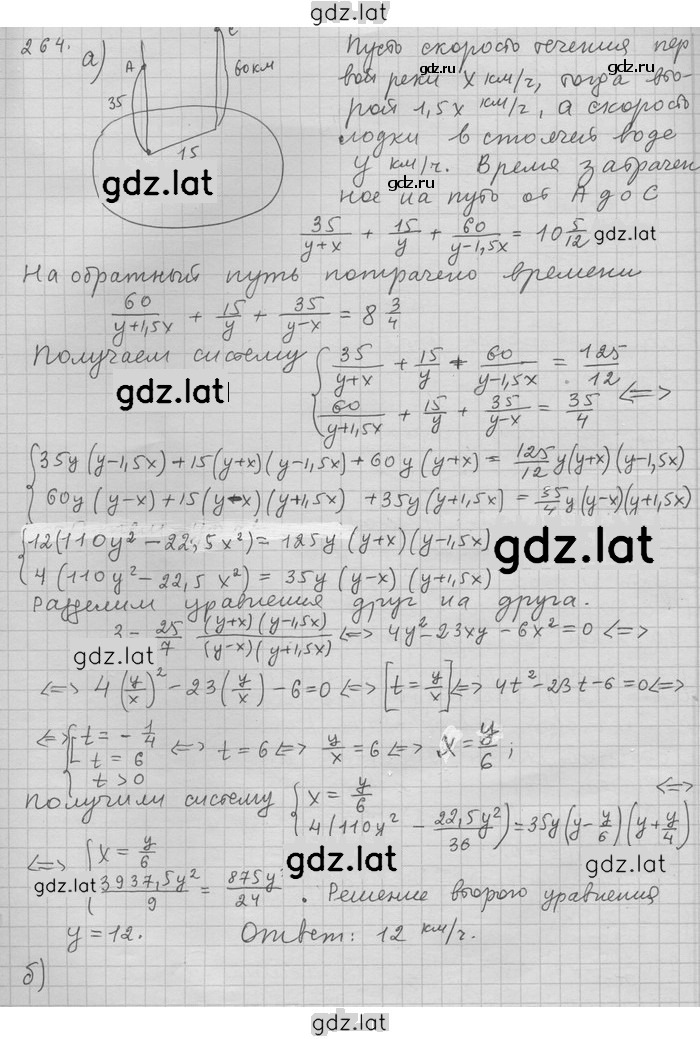 gdz.lat
264.
а)
A
C
35
60 км
15
gdz.lat
Пусть скорость течения пер
вой реки x км/ч, тогда вто-
gdz.ru
рой 1,5x км/ч, а скорость
лодки в стоячей воде
y км/ч. Время затрачен
gdz.ru
ное на путь от A до C
35/(y+x) + 15/y + 60/(y-1,5x) = 10 5/12
gdz.lat
На обратный путь потрачено времени
60/(y+1,5x) + 15/y + 35/(y-x) = 8 3/4
Получаем систему { 35/(y+x) + 15/y + 60/(y-1,5x) = 125/12
gdz.lat
60/(y+1,5x) + 15/y + 35/(y-x) = 35/4 <=>
{ 35y(y-1,5x)+15(y+x)(y-1,5x)+60y(y+x) = 125/12 y(y+x)(y-1,5x)
60y(y-x)+15(y-x)(y+1,5x) +35y(y+1,5x) = 35/4 y(y-x)(y+1,5x)
{ 12(110y² - 22,5x²) = 125y (y+x)(y-1,5x)
4(110y² - 22,5 x²) = 35y (y-x)(y+1,5x)
gdz.lat
Разделим уравнения друг на друга.
3 = 25/7 (y+x)(y-1,5x)/((y-x)(y+1,5x)) <=> 4y²-23xy-6x²=0 <=>
gdz.lat
<=> 4(y/x)² - 23(y/x) - 6=0 <=> [t = y/x] <=> 4t²-23t-6=0 <=>
<=> { [ t = -1/4
t = 6
t > 0
<=> t = 6 <=> y/x = 6 <=> x = y/6 ;
gdz.lat
Получили систему { x = y/6
4(110y² - 22,5y²/36) = 35y(y - y/6)(y + y/4)
<=>
gdz.lat
<=> { x = y/6
3937,5y²/9 = 875y³/24 . Решение второго уравнения
gdz.lat
gdz.lat
y = 12. Ответ: 12 км/ч.
б)
gdz.lat